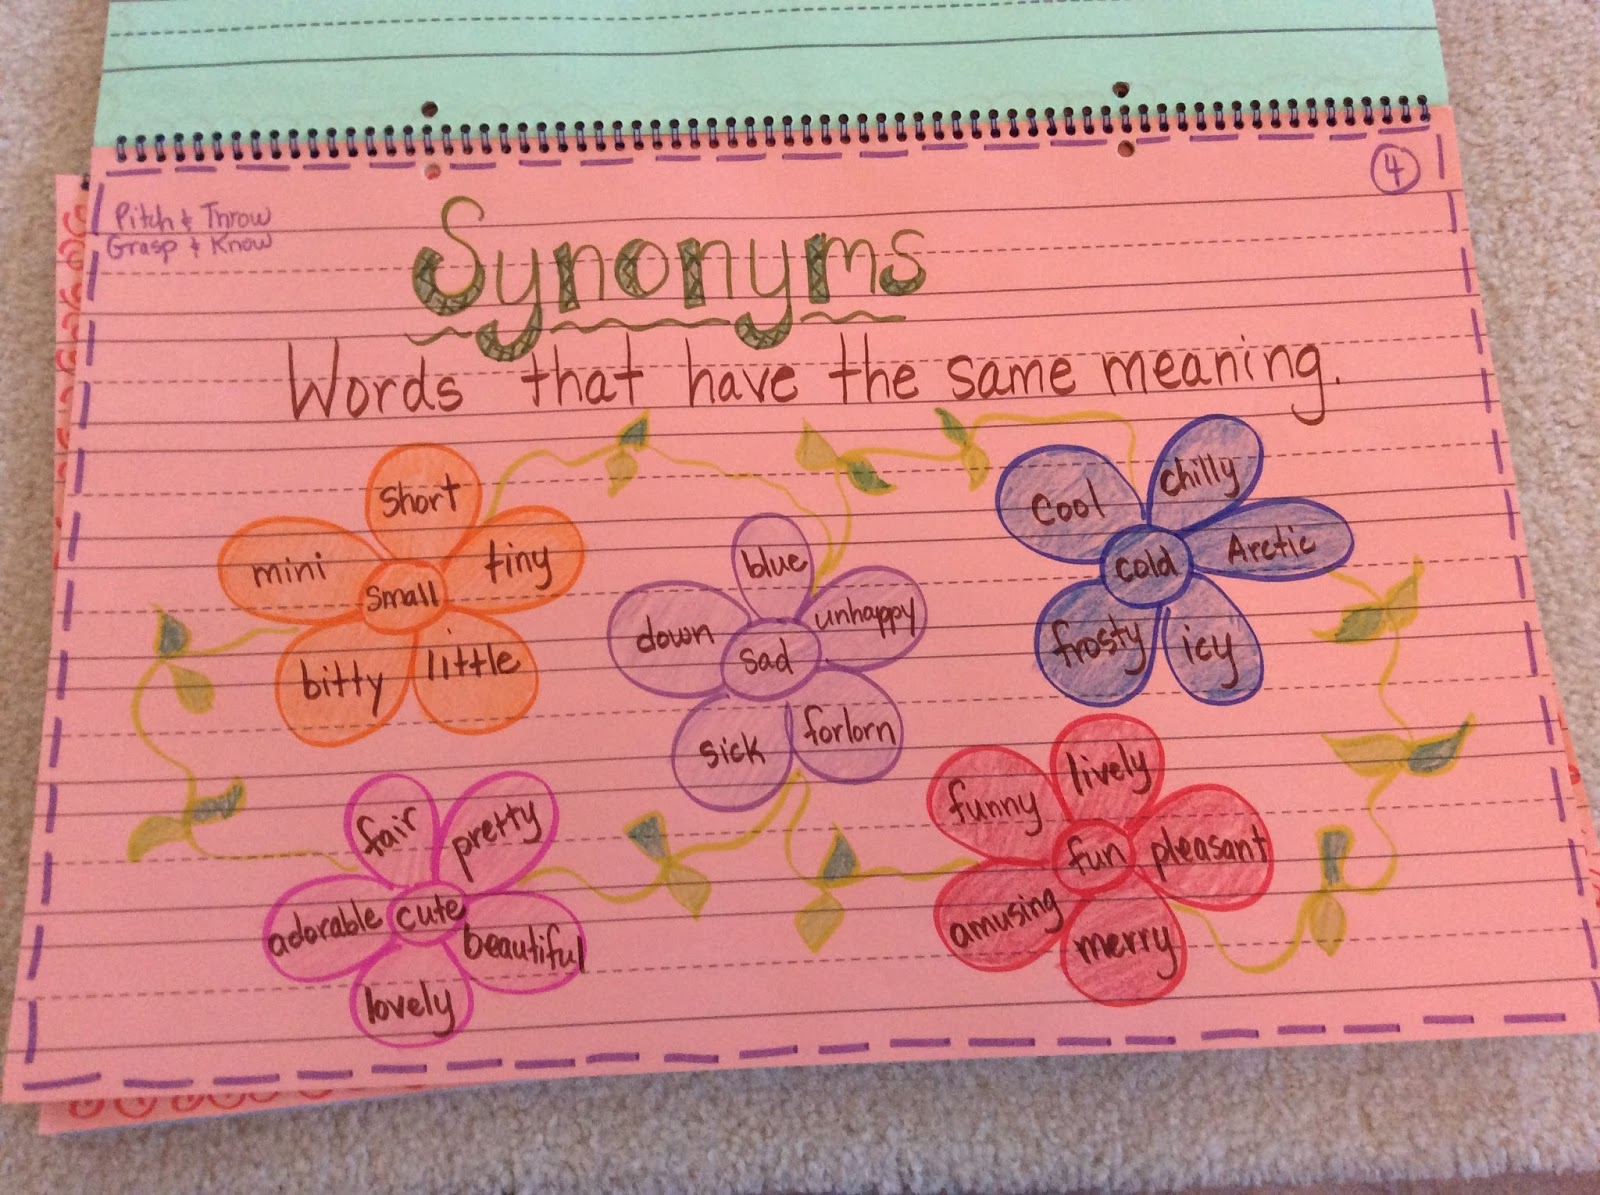 4
Pitch & Throw
Grasp & Know
Synonyms
Words that have the same meaning.
short
mini
tiny
small
bitty
little
blue
down
unhappy
sad
sick
forlorn
cool
chilly
Arctic
cold
frosty
icy
fair
pretty
adorable
cute
beautiful
lovely
funny
lively
fun
pleasant
amusing
merry